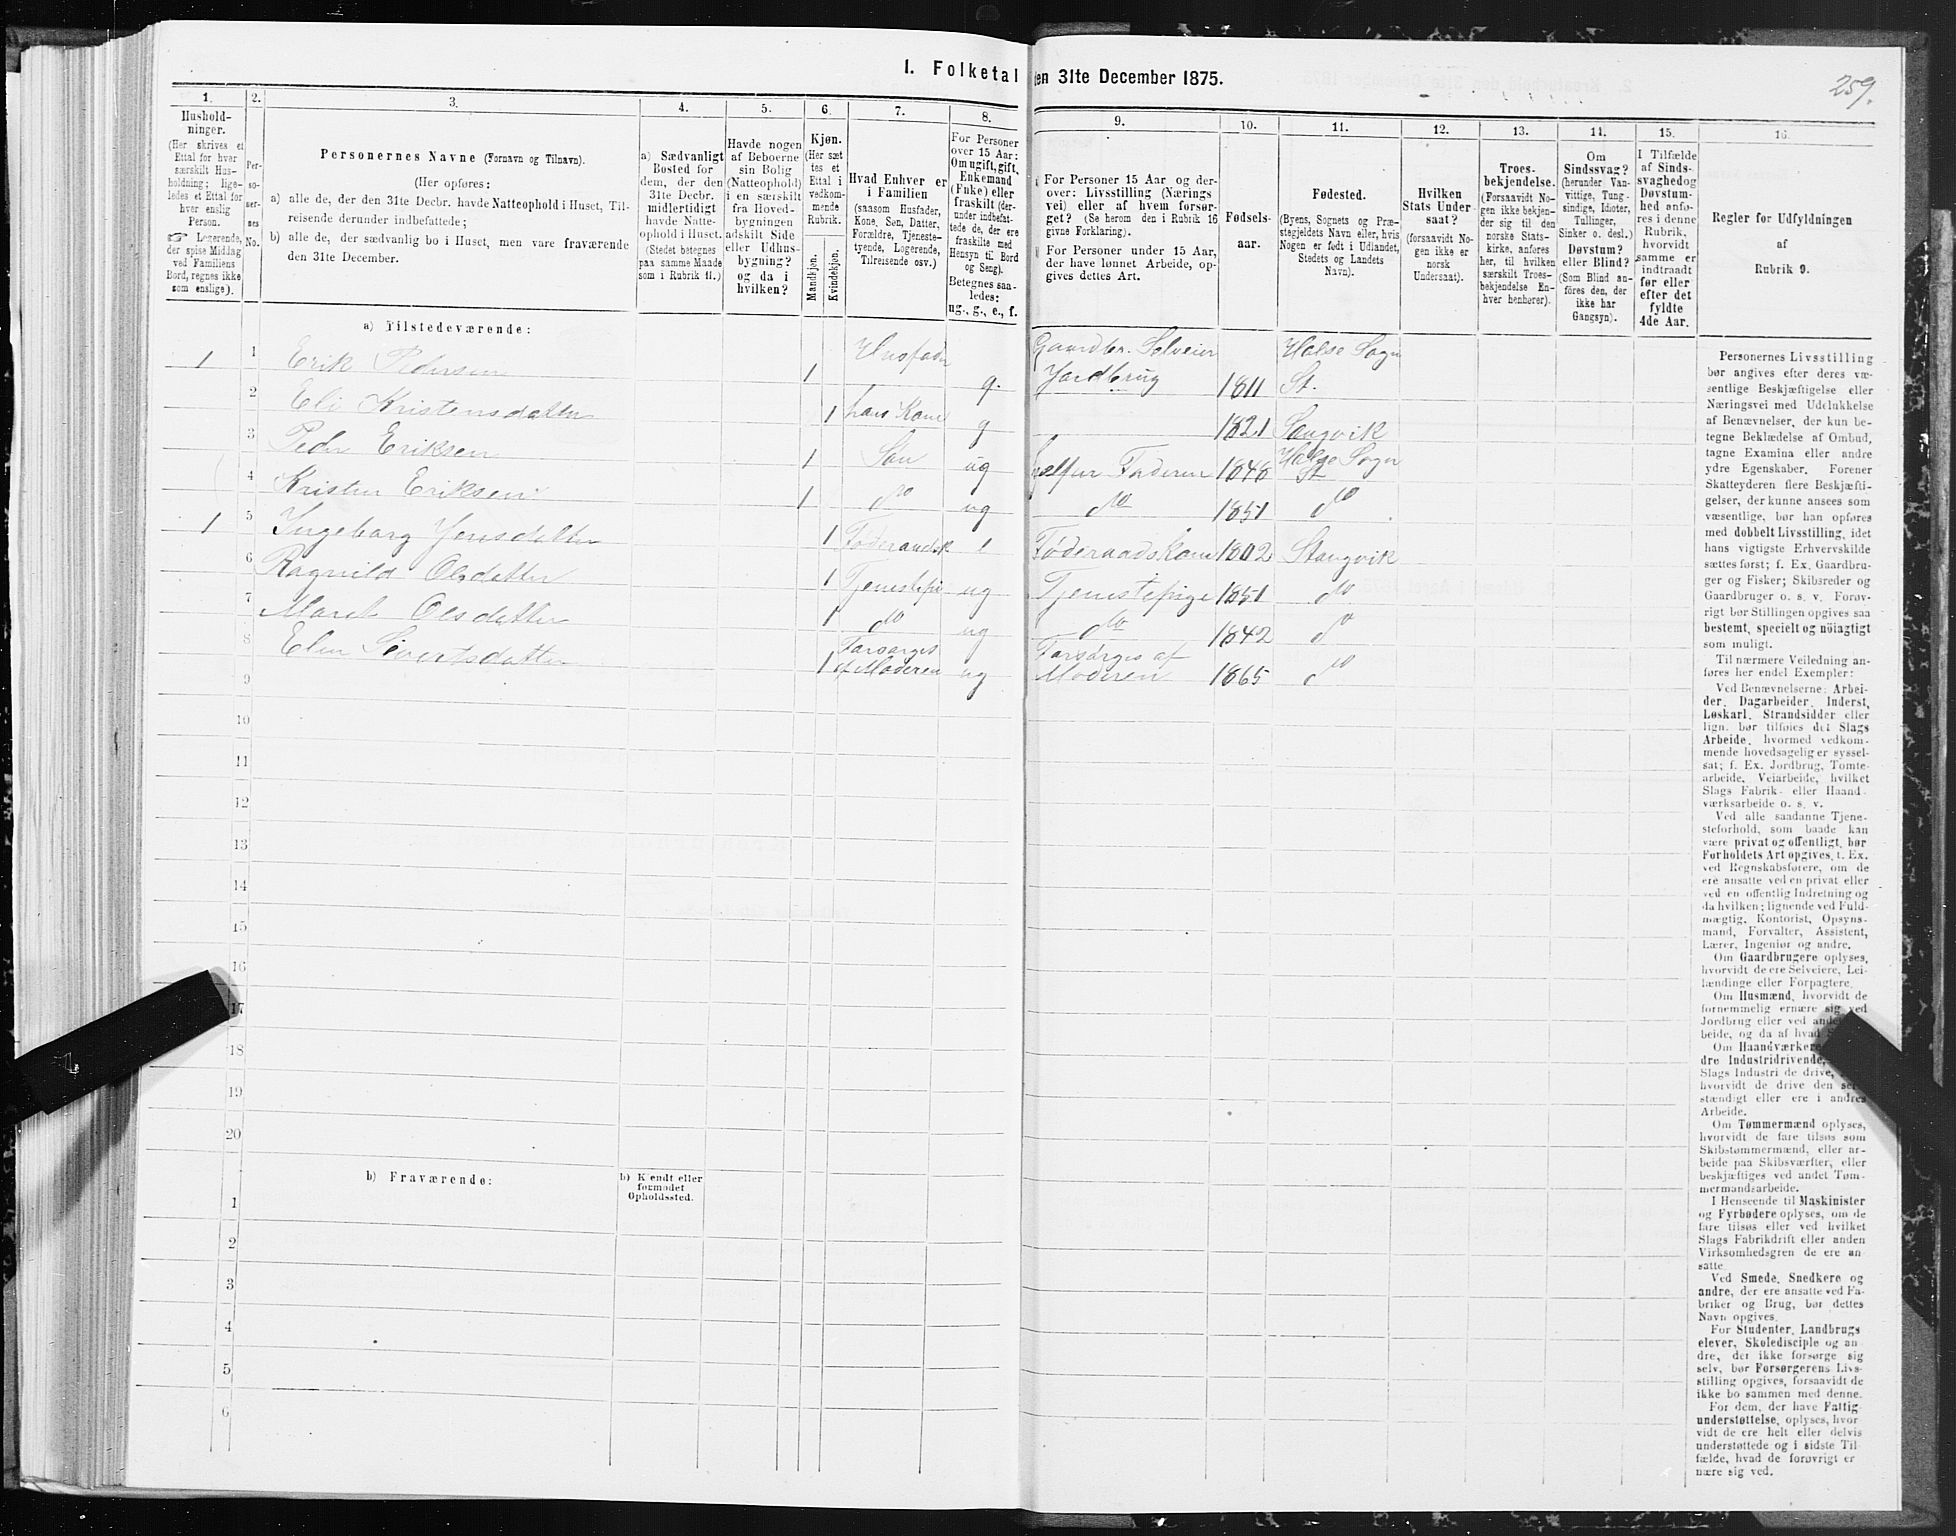 259.
1. Folketal
den 31te December 1875.
1.
Hushold-
ninger.
(Her skrives et
Ettal for hver
særskilt Hus-
holdning; lige-
ledes et Ettal for
hver enslig
Person.
Logerende,
der spise Middag
ved Familiens
Bord, regnes ikke
som enslige).
2.
Per-
so-
ner-
nes
No.
3.
Personernes Navne (Fornavn og Tilnavn).
(Her opføres:
a) alle de, der den 31te Decbr. havde Natteophold i Huset, Til-
reisende derunder indbefattede;
b) alle de, der sædvanlig bo i Huset, men vare fraværende
den 31te December.
4.
a) Sædvanligt
Bosted for
dem, der den
31te Decbr.
midlertidigt
havde Natte-
ophold i Huset.
(Stedet betegnes
paa samme Maade
som i Rubrik 11.)
5.
Havde nogen
af Beboerne
sin Bolig
(Natteophold)
i en særskilt
fra Hoved-
bygningen
adskilt Side
eller Udhus-
bygning?
og da i
hvilken?
6.
Kjøn.
(Her sæt
tes et
Ettal i
vedkom-
mende
Rubrik.
Mandkjøn.
Kvindekjøn.
7.
Hvad Enhver er
i Familien
(saasom Husfader,
Kone, Søn, Datter,
Forældre, Tjeneste-
tyende, Logerende,
Tilreisende osv.)
8.
For Personer
over 15 Aar:
Om ugift, gift,
Enkemand
(Enke) eller
fraskilt (der-
under indbefat-
tede de, der ere
fraskilte med
Hensyn til Bord
og Seng).
Betegnes saa-
ledes:
ug., g., e., f.
9.
For Personer 15 Aar og der-
over: Livsstilling (Nærings
vei) eller af hvem forsør-
get? (Se herom den i Rubrik 16
givne Forklaring).
For Personer under 15 Aar,
der have lønnet Arbeide, op-
gives dettes Art.
10.
Fødsels-
aar.
11.
Fødested.
(Byens, Sognets og Præ-
stegjeldets Navn eller, hvis
Nogen er født i Udlandet,
Stedets og Landets
Navn).
12.
Hvilken
Stats Under
saat?
(forsaavidt No-
gen ikke er
norsk
Undersaat).
13.
Troes-
bekjendelse.
(Forsaavidt No-
gen ikke bekjen-
der sig til den
norske Stats-
kirke, anføres
her, til hvilken
særskilt Troes-
bekjendelse En-
hver henhører).
14.
Om
Sindssvag?
(herunder Van-
vittige, Tung-
sindige, Idioter,
Tullinger,
Sinker o. desl.)
Døvstum?
eller Blind?
(Som Blind an-
føres den, der
ikke har
Gangsyn).
15.
I Tilfælde
af Sinds-
svaghed og
Døvstum-
hed anfø-
res i denne
Rubrik,
hvorvidt
samme er
indtraadt
før eller
efter det
fyldte
4de Aar.
16.
Regler for Udfyldningen
af
Rubrik 9.
a) Tilstedeværende:
1 1 Erik Pedersen 1 Husfader g. Gaardbr. Selveier Jordbrug 1811 Halse Sogn St.
2 Eli Kristensdatter 1 hans Kone g 1821 Stangvik
3 Peder Eriksen 1 Søn ug hjelper Faderen 1848 Halse Sogn St
4 Kristen Eriksen 1 do ug do 1851 do
1 5 Ingeborg Jensdatter 1 Føderaadsk e Føderaadskone 1802 Stangvik
6 Ragnild Olsdatter 1 Tjenestepi ug Tjenestepige 1851 do
7 Maret Olsdatter 1 do ug do 1842 do
8 Elen Sivertsdatter 1 Forsørges af Moderen ug Forsørges af Moderen 1865 do
9
10
11
12
13
14
15
16
17
18
19
20
b) Fraværende:
b) Kendt eller
formodet
Opholdssted.
1
2
3
4
5
6
Personernes Livsstilling
bør angives efter deres væ-
sentlige Beskjæftigelse eller
Næringsvei med Udelukkelse
af Benævnelser, der kun be-
tegne Beklædelse af Ombud,
tagne Examina eller andre
ydre Egenskaber. Forener
Skatteyderen flere Beskjæfti-
gelser, der kunne ansees som
væsentlige, bør han opføres
med dobbelt Livsstilling, idet
hans vigtigste Erhvervskilde
sættes først; f. Ex. Gaardbru-
ger og Fisker; Skibsreder og
Gaardbruger o. s. v. Forøv-
rigt bør Stillingen opgives saa
bestemt, specielt og nöiagtigt
som muligt.
Til nærmere Veiledning an-
føres her endel Exempler:
Ved Benævnelserne: Arbei-
der, Dagarbeider, Inderst,
Løskarl, Strandsidder eller
lign. bør tilføies det Slags
Arbeide, hvormed vedkom-
mende hovedsagelig er syssel-
sat; f. Ex. Jordbrug, Tomte-
arbeide, Veiarbeide, hvilket
Slags Fabrik- eller Haand-
værksarbeide o. s. v.
Ved alle saadanne Tjene-
steforhold, som baade kan
være privat og offentligt, bør
Forholdets Art opgives, f. Ex.
ved Regnskabsførere, om de
ere ansatte ved en privat eller
ved en offentlig Indretning og
da hvilken; lignende ved Fuld-
mægtig, Kontorist, Opsyns-
mand, Forvalter, Assistent,
Lærer, Ingeniør og andre.
Om Gaardbrugere oplyses,
hvorvidt de ere Selveiere, Lei-
lændinge eller Forpagtere.
Om Husmænd, hvorvidt de
fornemmelig ernære sig ved
Jordbrug eller ved andet
beide, og da af hvad
Om Haandværkere
dre Industridrivende,
Slags Industri de drive,
hvorvidt de drive den sel-
stændigt eller ere i andres
Arbeide.
Om Tømmermænd oplyses,
hvorvidt de fare tilsøs som
Skibstømmermænd, eller ar-
beide paa Skibsværfter, eller
beskjæftiges ved andet Tøm-
mermandsarbeide.
I Henseende til Maskinister
og Fyrbødere oplyses, om de
fare tilsøs eller ved hvilket
Slags Fabrikdrift eller anden
Virksomhedsgren de ere an-
satte.
Ved Smede, Snedkere og
andre, der ere ansatte ved Fa-
briker og Brug, bør dettes
Navn opgives.
For Studenter, Landbrugs
elever, Skoledisciple og an-
dre, der ikke forsørge sig
selv, bør Forsørgerens Livs-
stilling opgives, forsaavidt de
ikke bo sammen med denne.
For dem, der have Fattig-
understøttelse, oplyses, hvor
vidt de ere helt eller delvis
understøttede og i sidste Til-
fælde, hvad de forøvrigt er
nære sig ved.